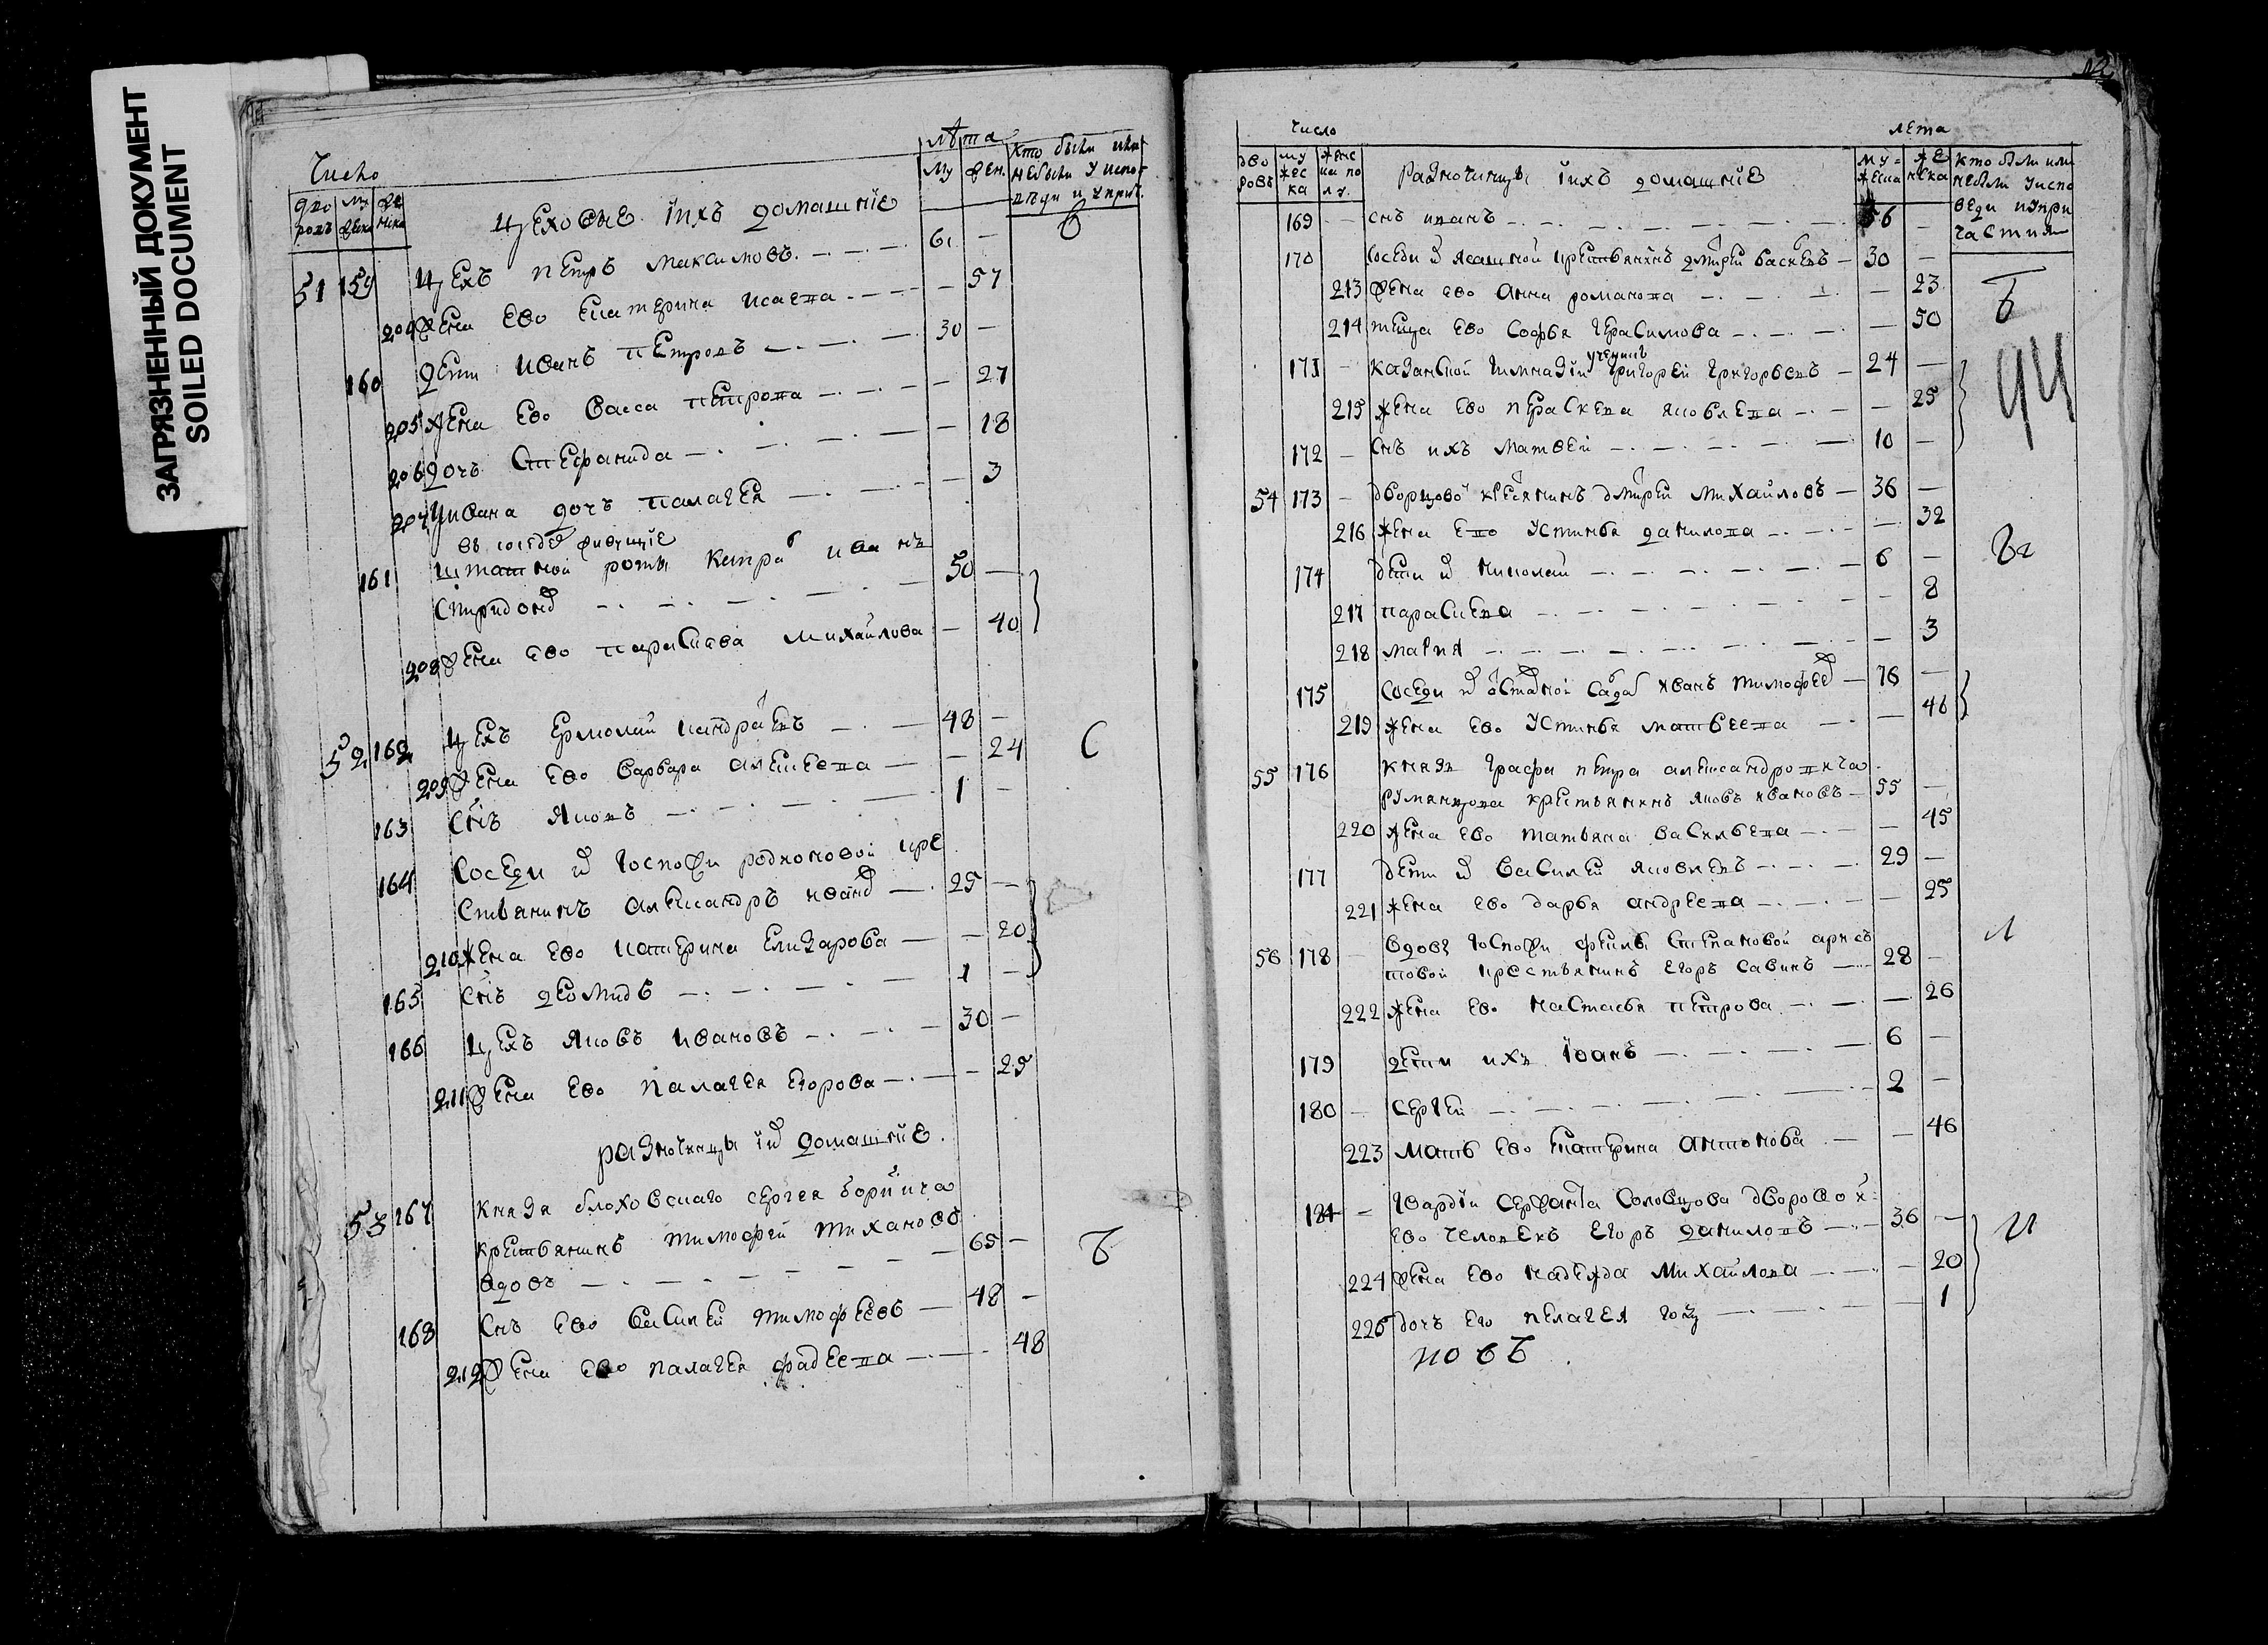 ЗАГРЯЗНЕННЫЙ ДОКУМЕНТ
SOILED DOCUMENT
Число
лѣта
дво му же
ровъ жеска нска
цеховые iихъ домашнiе
Му жен.
кто были или
небыли у испо
вѣди и у прич.
51 159 цехъ петръ максимовъ 61 —
204 жена ево екатерина исаева — 57
160 дети иванъ петровъ 30 —
205 жена ево васса петрова — 27
206 дочь стефанида — 18
207 ивана дочь палагея — 3
въ соседе живущiе
161 штатной роты капра иванъ
спиридоно 50 —
208 жена ево параскева михайлова — 40
52 162 цехъ ермолай кандратевъ 48 — С
209 жена ево варвара алексеева — 24
163 снъ яковъ 1 —
164 соседи и госпожи родионовой кре
стьянинъ александръ ивано 25 —
210 жена ево катерина елизарова — 20
165 снъ деомидъ 1 —
166 цехъ яковъ ивановъ 30 —
211 жена ево палагея егорова — 25
разночинцы iи домашнiе.
53 167 князя блоховскаго сергея борисича
крестьянинъ тимофей тихановъ
вдовъ 65 —
168 снъ ево василей тимофеевъ 48 —
212 жена ево палагея фадеева — 48
число
лета
дво му женс
ровъ жес ка по
ка лу.
разночинцы iихъ домашнiе
му= же
жеска нска
кто были или
небыли у испо
веди и у при
частия
169 — снъ иванъ 56 —
170 соседи и ясашной крестьянинъ дмитрей васкевъ 30 —
213 жена ево анна романова — 23
214 теща ево софья герасимова — 50
ученикъ
171 — казанской гимназiи григорей григорьевъ 24 —
215 жена ево параскева яковлева — 25
172 — снъ ихъ матвей 10 —
54 173 — дворцово крестянинъ дмитрей михайловъ 36 —
216 жена ево устинья данилова — 32
174 дети и николай 6 —
217 параскева — 8
218 мария — 3
175 соседи и оставной солда иванъ тимофее 76 —
219 жена ево устинья матвеева — 46
55 176 князя графа петра александровича
румянцова крестьянинъ яковъ ивановъ 55 —
220 жена ево татьяна васильева — 45
177 дети и василей яковлевъ 29 —
221 жена ево дарья андреева — 25
56 178 — вдовы госпожи феклы степановой арис
товой крестьянинъ егоръ савинъ 28 —
222 жена ево настасья петрова — 26
179 дети ихъ iванъ 6 —
180 — сергей 2 —
223 мать ево екатерина антонова — 46
181 — гвардiи сержанта соловцова дворовой
ево человекъ егоръ даниловъ 36 —
224 жена ево надежда михайлова — 20
225 дочь его пелагея году — 1